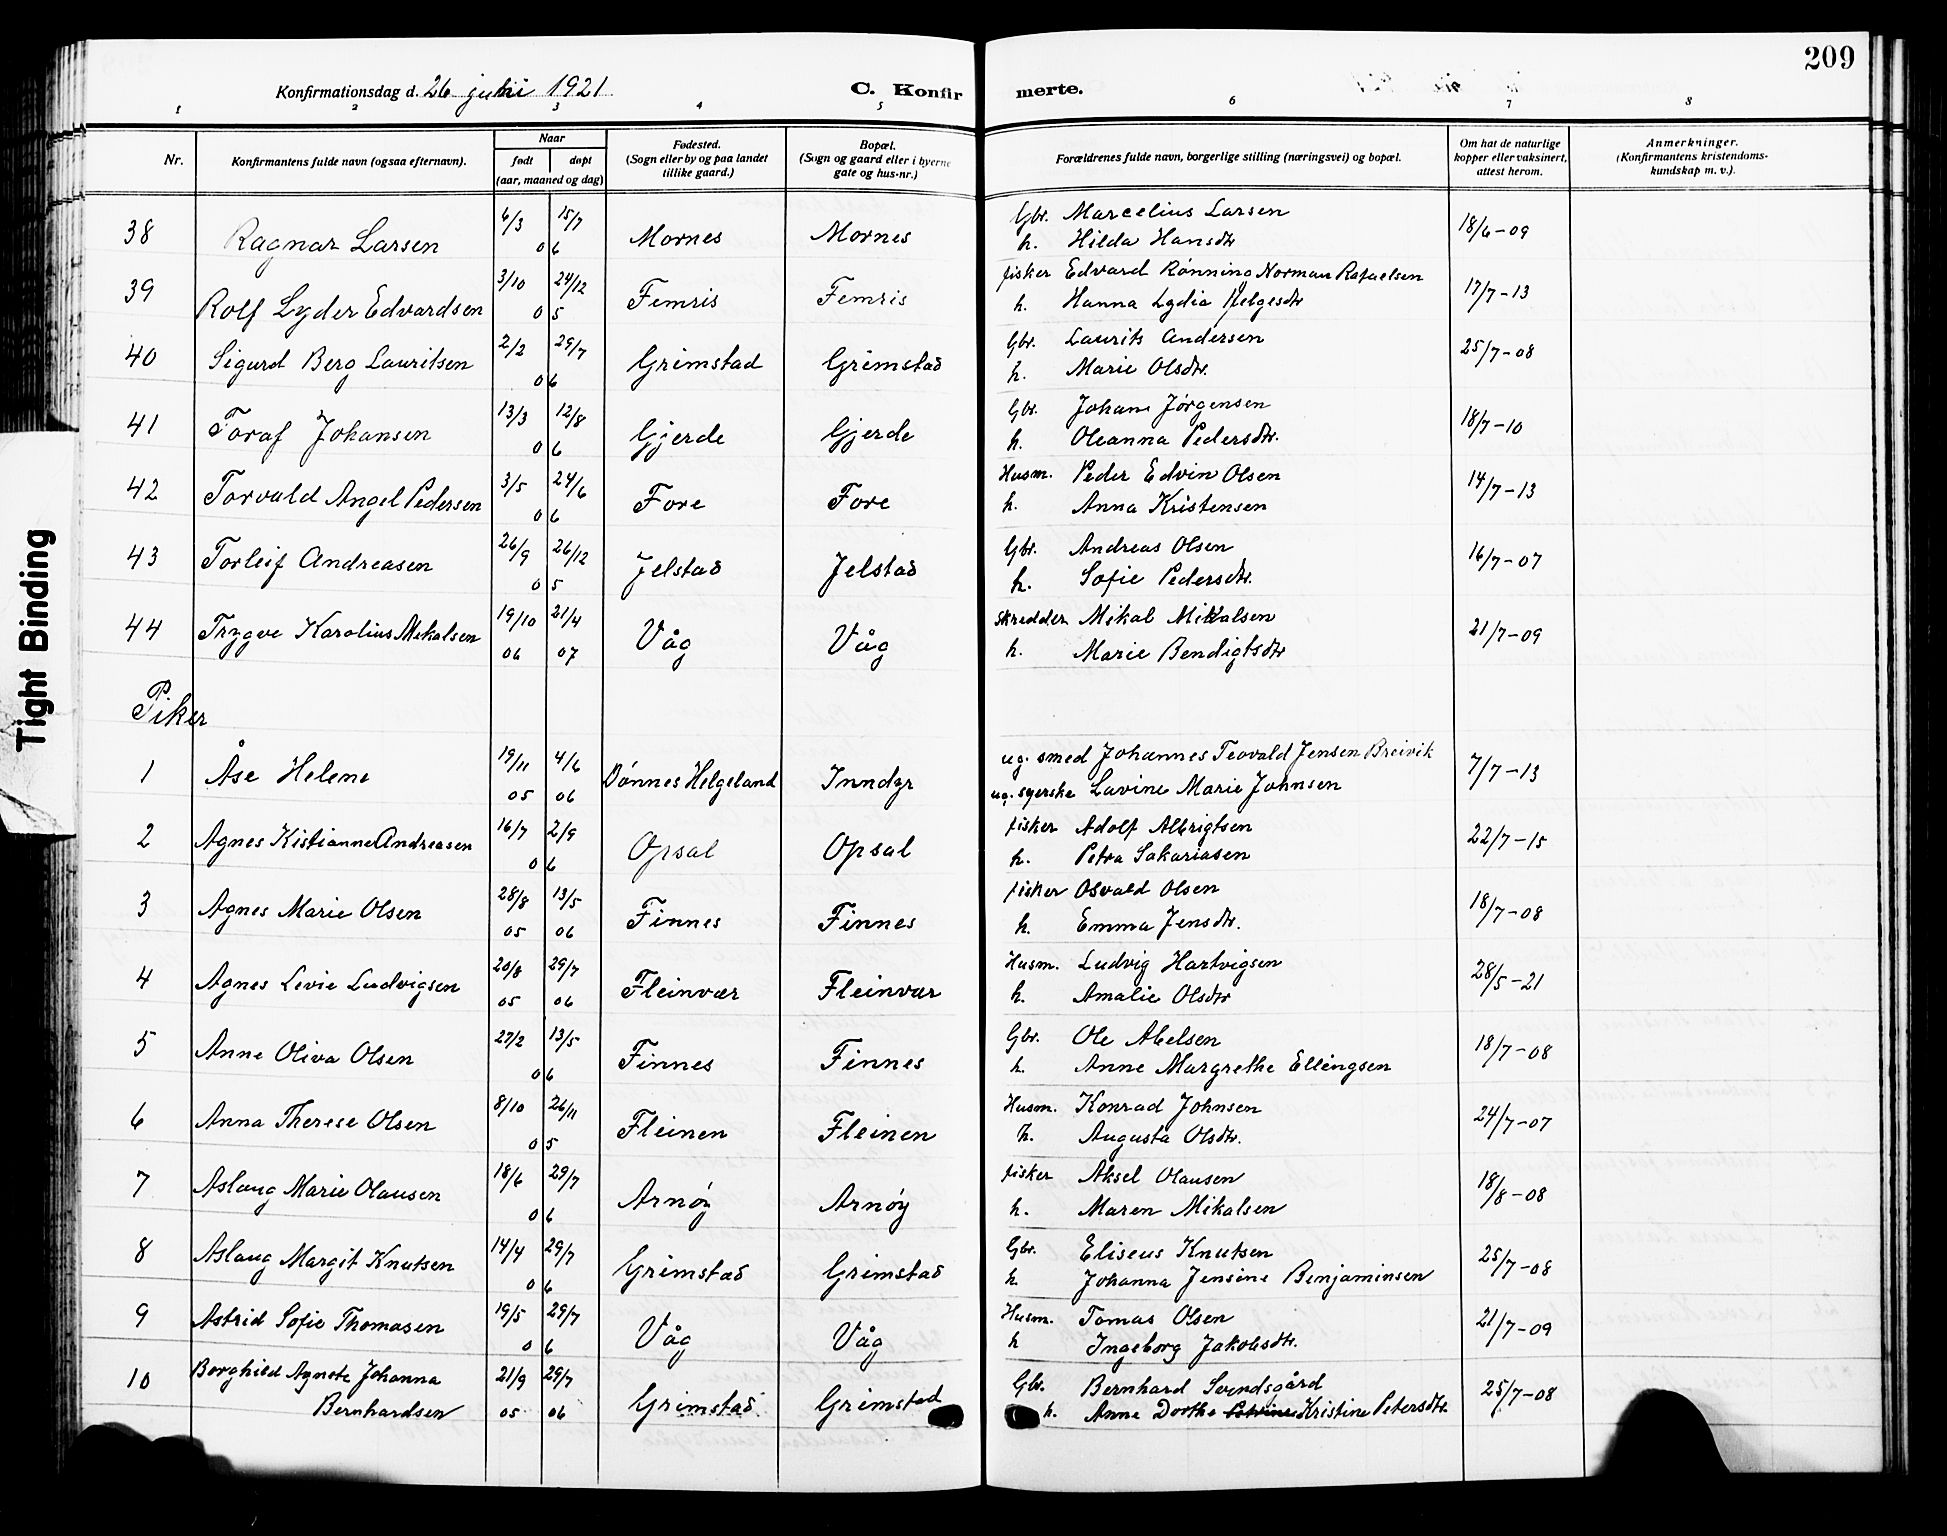 209
Konfirmationsdag d. 26 juni 1921
C. Konfirmerte.
1 2 3 4 5 6 7 8
Nr. Konfirmantens fulde navn (ogsaa efternavn). Naar født døpt (aar, maaned og dag) Fødested. (Sogn eller by og paa landet tillike gaard.) Bopæl. (Sogn og gaard eller i byerne gate og hus-nr.) Forældrenes fulde navn, borgerlige stilling (næringsvei) og bopæl. Om hat de naturlige kopper eller vaksinert, attest herom. Anmerkninger. (Konfirmantens kristendoms-kundskap m. v.).
38 Ragnar Larsen 6/3 15/7 06 Mornes Mornes Gbr. Marcelius Larsen 18/6-09
h. Hilda Hansdtr
39 Rolf Lyder Edvardsen 3/10 24/12 05 Femris Femris fisker Edvard Rønning Norman Rafaelsen 17/7-13
h. Hanna Lydia Helgesdtr
40 Sigurd Berg Lauritsen 2/2 29/7 06 Grimstad Grimstad Gbr. Laurits Andersen 25/7-08
h. Marie Olsdtr.
41 Toraf Johansen 13/3 12/8 06 Gjerde Gjerde Gbr. Johan Jørgensen 18/7-10
h. Oleanna Pedersdtr.
42 Torvald Angel Pedersen 3/5 24/6 06 Fore Fore Husm. Peder Edvin Olsen 14/7-13
h. Anna Kristensen
43 Torleif Andreasen 26/9 26/12 05 Jelstad Jelstad Gbr. Andreas Olsen 16/7-07
h. Sofie Pedersdtr.
44 Trygve Karolius Mikalsen 19/10 06 21/4 07 Våg Våg Skredder Mikal Mikalsen 21/7-09
h. Marie Bendigtsdtr
Piker
1 Åse Helene 19/11 05 4/6 06 Dønnes Helgeland Inndyr ug. smed Johannes Teovald Jensen Breivik 7/7-13
ug. syerske Lavine Marie Johnsen
2 Agnes Kistianne Andreasen 16/7 2/9 06 Opsal Opsal fisker Adolf Albrigtsen 22/7-15
h. Petra Sakariasen
3 Agnes Marie Olsen 28/8 05 13/5 06 Finnes Finnes fisker Osvald Olsen 18/7-08
h. Emma Jensdtr.
4 Agnes Levie Ludvigsen 20/8 05 29/7 06 Fleinvær Fleinvær Husm. Ludvig Hartvigsen 28/5-21
h. Amalie Olsdtr
5 Anne Oliva Olsen 27/2 13/5 06 Finnes Finnes Gbr. Ole Abelsen 18/7-08
h. Anne Margrethe Ellingsen
6 Anna Therese Olsen 8/10 26/11 05 Fleinen Fleinen Husm. Konrad Johnsen 24/7-07
h. Augusta Olsdtr.
7 Aslaug Marie Olausen 18/6 29/7 06 Arnøy Arnøy fisker Aksel Olausen 18/8-08
h. Maren Mikalsen
8 Aslaug Margit Knutsen 14/4 29/7 06 Grimstad Grimstad Gbr. Eliseus Knutsen 25/7-08
h. Johanna Jensine Benjaminsen
9 Astrid Sofie Thomasen 19/5 29/7 06 Våg Våg Husm. Tomas Olsen 21/7-09
h Ingeborg Jakobsdtr.
10 Borghild Agnete Johanna 21/9 05 29/7 06 Grimstad Grimstad Gbr. Bernhard Svendsgård 25/7-08
Bernhardsen h. Anne Dorthe Kristine Petersdtr.
Tight Binding